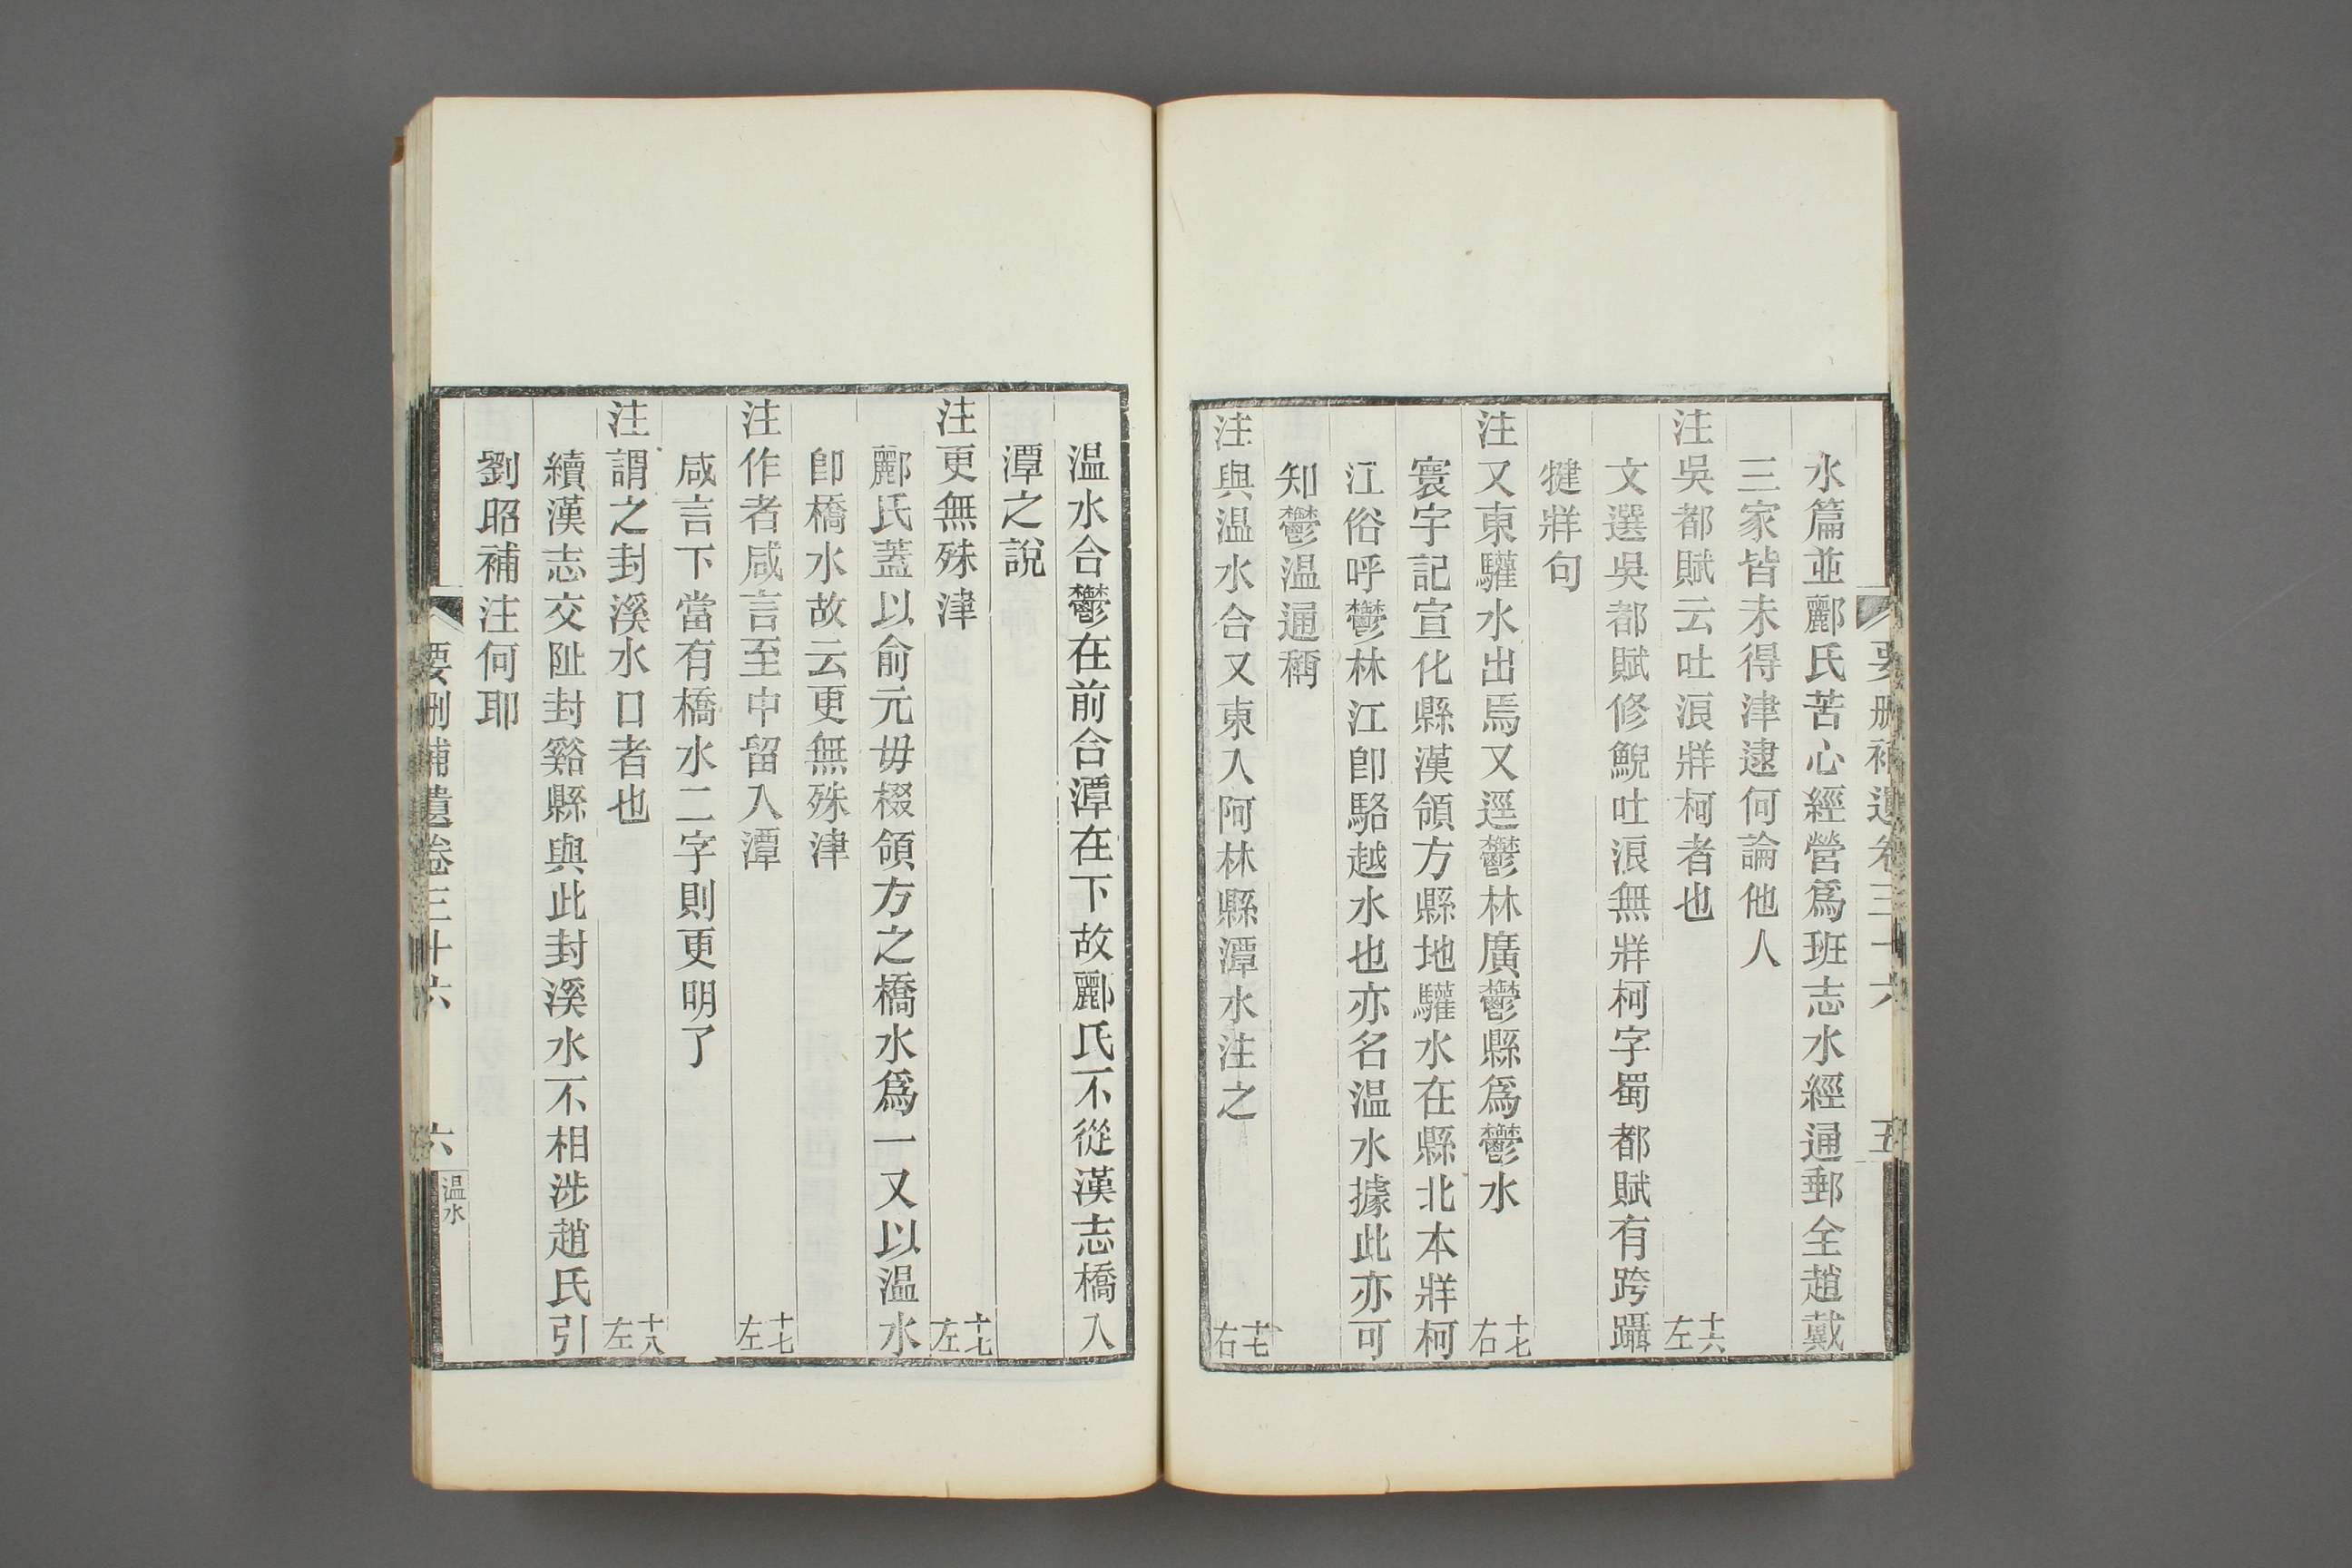 要刪補遺卷三十六 五
水篇並酈氏苦心經營爲班志水經通郵全趙戴
三家皆未得津逮何論他人
注吳都賦云吐浪牂柯者也 十六左
文選吳都賦修鯢吐浪無牂柯字蜀都賦有跨躡
犍牂句
注又東驩水出焉又逕鬱林廣鬱縣爲鬱水 十七右
寰宇記宣化縣漢領方縣地驩水在縣北本牂柯
江俗呼鬱林江卽駱越水也亦名温水據此亦可
知鬱温通稱
注與温水合又東入阿林縣潭水注之 十七右
温水合鬱在前合潭在下故酈氏不從漢志橋入
潭之說
注更無殊津 十七左
酈氏蓋以俞元毋棳領方之橋水爲一又以温水
卽橋水故云更無殊津
注作者咸言至中留入潭 十七左
咸言下當有橋水二字則更明了
注謂之封溪水口者也 十八左
續漢志交阯封谿縣與此封溪水不相涉趙氏引
劉昭補注何耶
要刪補遺卷三十六 六 温水